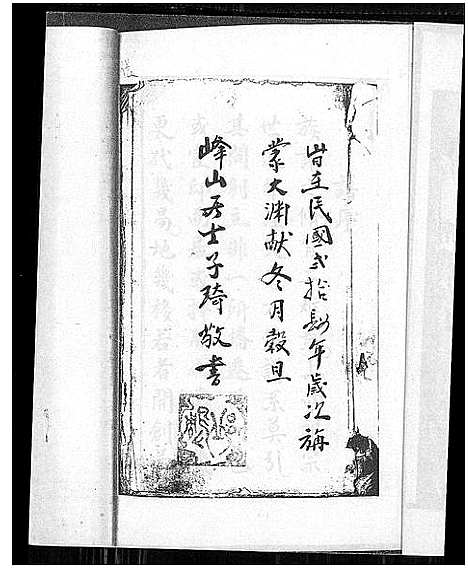 旹在民國弍拾肆年歲次旃
蒙大淵献冬月穀旦
峰山居士子琦敬書